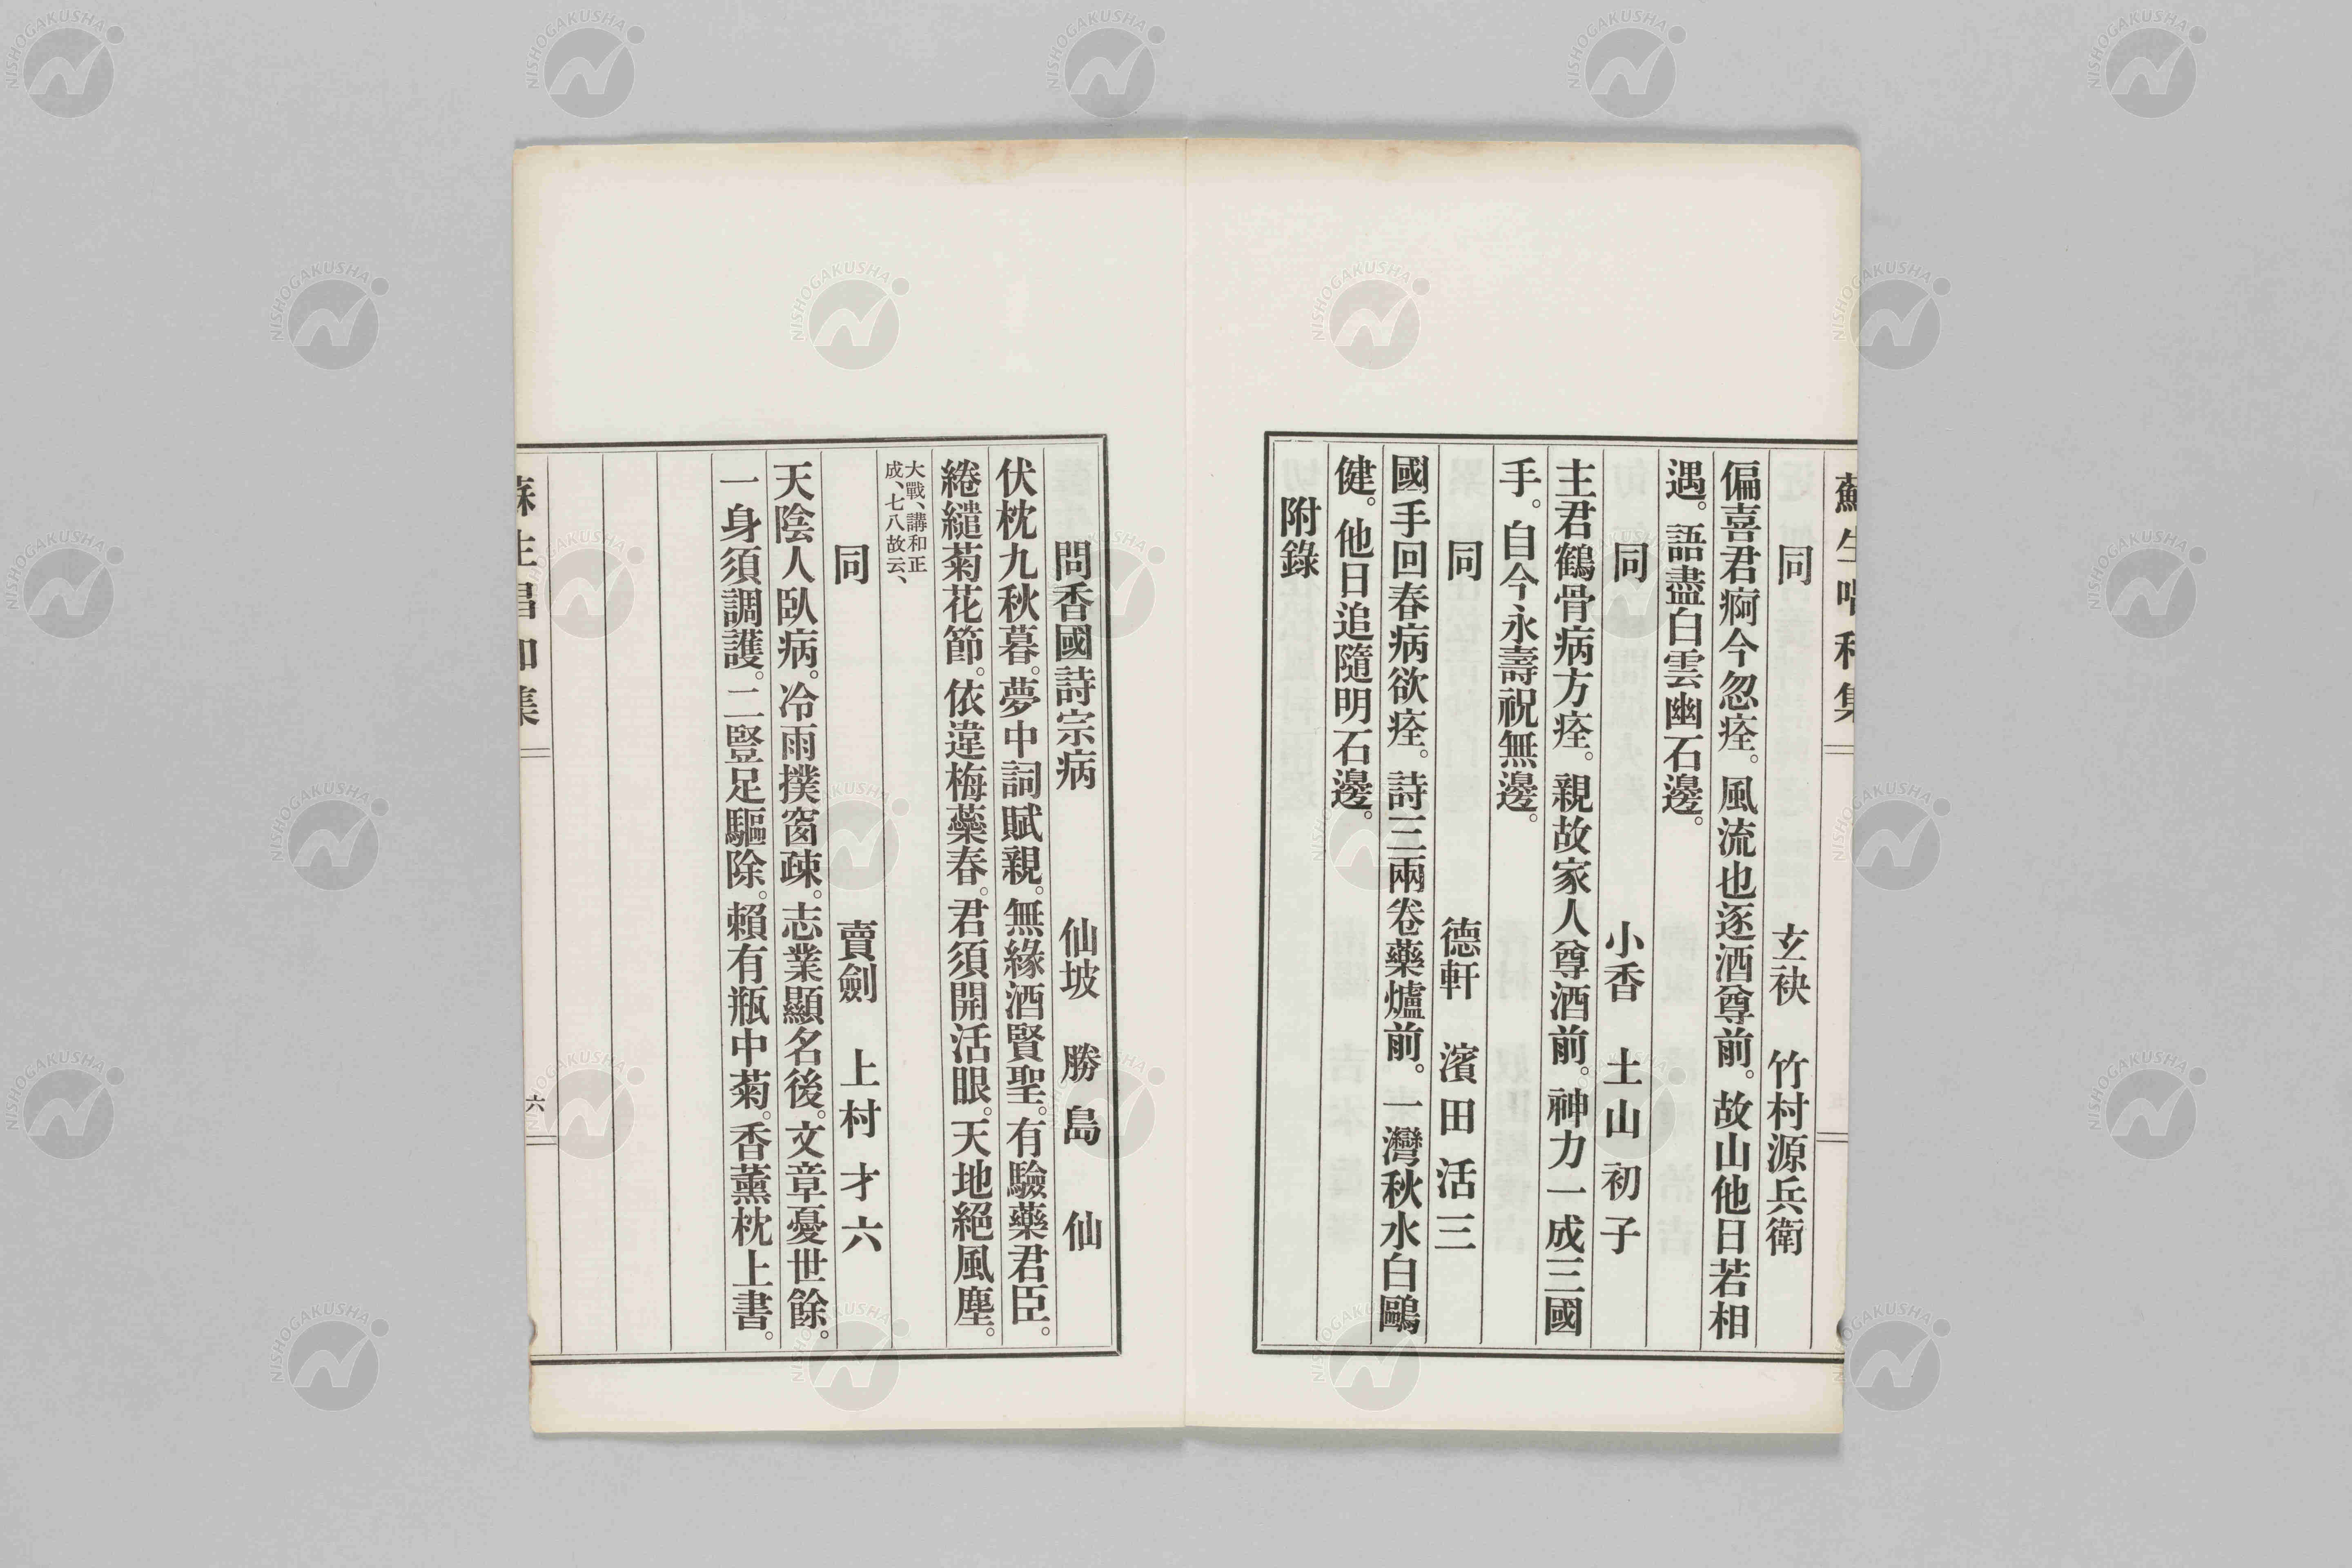 蘇生唱和集
同　玄袂　竹村源兵衛
偏喜君痾今忽痊。風流也逐酒尊前。故山他日若相
遇。語盡白雲幽石邊。
同　小香　土山初子
主君鶴骨病方痊。親故家人尊酒前。神力一成三國
手。自今永壽祝無邊。
同　德軒　濱田活三
國手回春病欲痊。詩三兩卷藥爐前。一灣秋水白鷗
健。他日追隨明石邊。
附錄
問香國詩宗病　仙坡　勝島仙
伏枕九秋暮。夢中詞賦親。無緣酒賢聖。有驗藥君臣。
綣繾菊花節。依違梅蘂春。君須開活眼。天地絕風塵。
大戰、講和正
成、七八故云、
同　賣劍　上村才六
天陰人臥病。冷雨撲窗疎。志業顯名後。文章憂世餘。
一身須調護。二豎足驅除。賴有瓶中菊。香薰枕上書。
蘇生唱和集
六
NISHOGAKUSHA